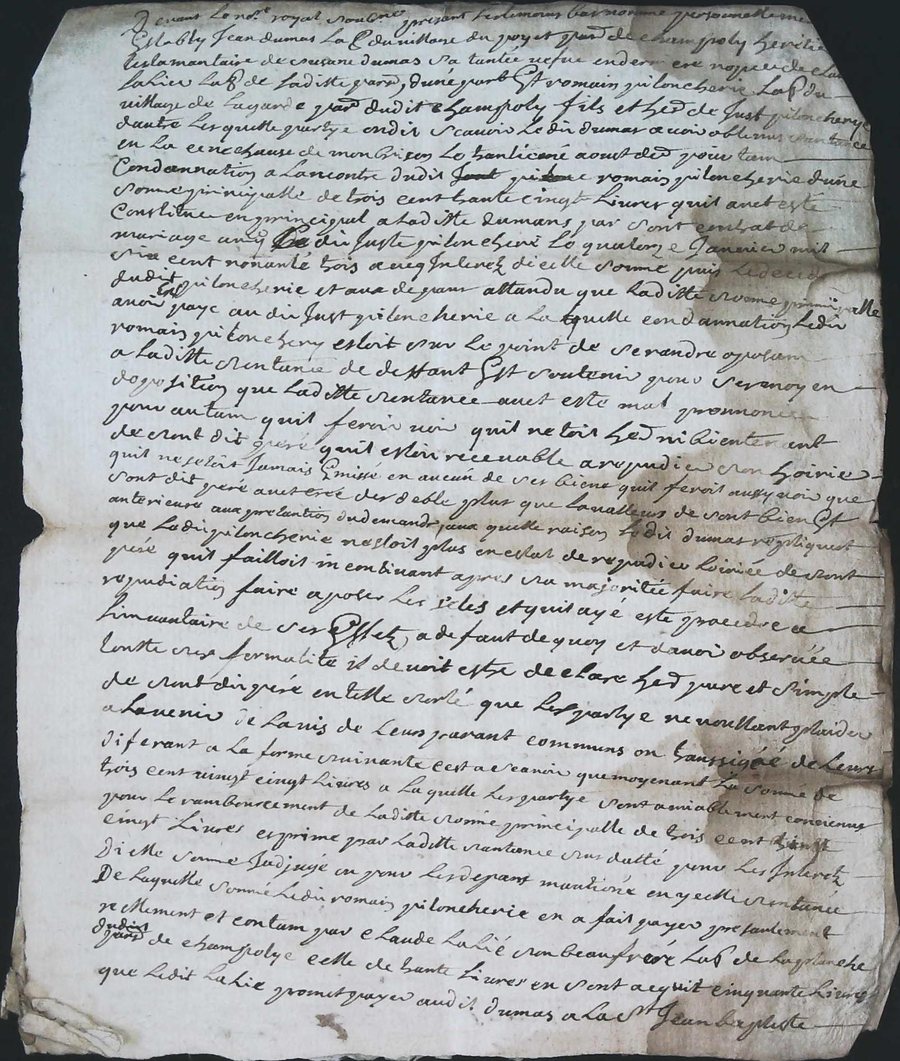 Devant le no.re royal soubne presant les temoins bas nommé personnellemt
Estably Jean dumas lab. du village du poyet par.e de champoly heritie
testamantaire de susane dumas sa tantée vefue en dernere nopce de clau
lahier lab. de laditte par.e, d'une part Est romain piloncherie lab. du
village de lagarde par.e dudit champoly fils et hed. de Just piloncherye
d'autre les quelle partye ondit scauoir ledit dumas auoir obtenus santance
en la cenechausé de monbrison le tranticiné aoust der pourtam
Condannation a lancontre dudit romain piloncherie d'une
somme principalle de trois cent trante cingt Livres quil auet esté
Constitué en principal a laditte dumans par sont contrat de
mariage auq ledit Juste piloncherie le quatorze Januier mil
six cent nonante trois aueq Interetz dicelle somme puis le deced
dudit piloncherie et aux depant attandu que laditte somme prinsipalle
auoir Esté payé au dit Just piloncherie a laquelle condannation ledit
romain piloncherÿ estoit sur le point de se randre oposam
a laditte santance de deffant Est soutenir pour ses moyen
doposition que laditte santance auet esté mal prononcé
pour autam quil feroit voir quil netoit hed. ni bientenent
de sont dit peré quil estoit receuable a repudier son hoirie
quil ne setoit Jamais Emissé en aucun de ses biens quil feroit aussy voir que
sont dit peré auet creé des deble plus que la valleur de sont bien Et
anterieure aux pretantion du demandr, aux quelle raison ledit dumas repliquet
que ledit piloncherie nestoit plus en estat de repudier loiriée de sont
peré quil failloit incontinant apres sa majoritée faire laditte
repudiation faire aposer les seles et quit aye este procedre a
linuantaire de ses Effetz, a defaut de quoy et dauoir obseruée
toutte ses formalité il devoit estre declaré hed. pure et simple
de sont dit peré en telle sorté que les partye ne voullant plaider
alauenir de lauis de leurs parant communs on transigéé de leurs
diferant a la forme suiuante cest a scauoir que moyenant la somme de
trois cent vingt cingt liures a la quelle les partye sont amiablement conuenus
pour le rambourcement de laditte somme principalle de trois cent trante
cingt Livres exprimé par laditte santance sus datté pour les Interetz
dicelle sommé Jadjugé ou pour les depant mantioné en ycelle santance
De laquelle sommé ledit romain piloncherie en a fait payer presantement
rellement et contam par claude lahié son beaufréré lab. de laplanche
par.e de champolye celle de trante Livres en sont acquit cinquante livres
que ledit lahie promet payer audit dumas a la St Jean baptiste